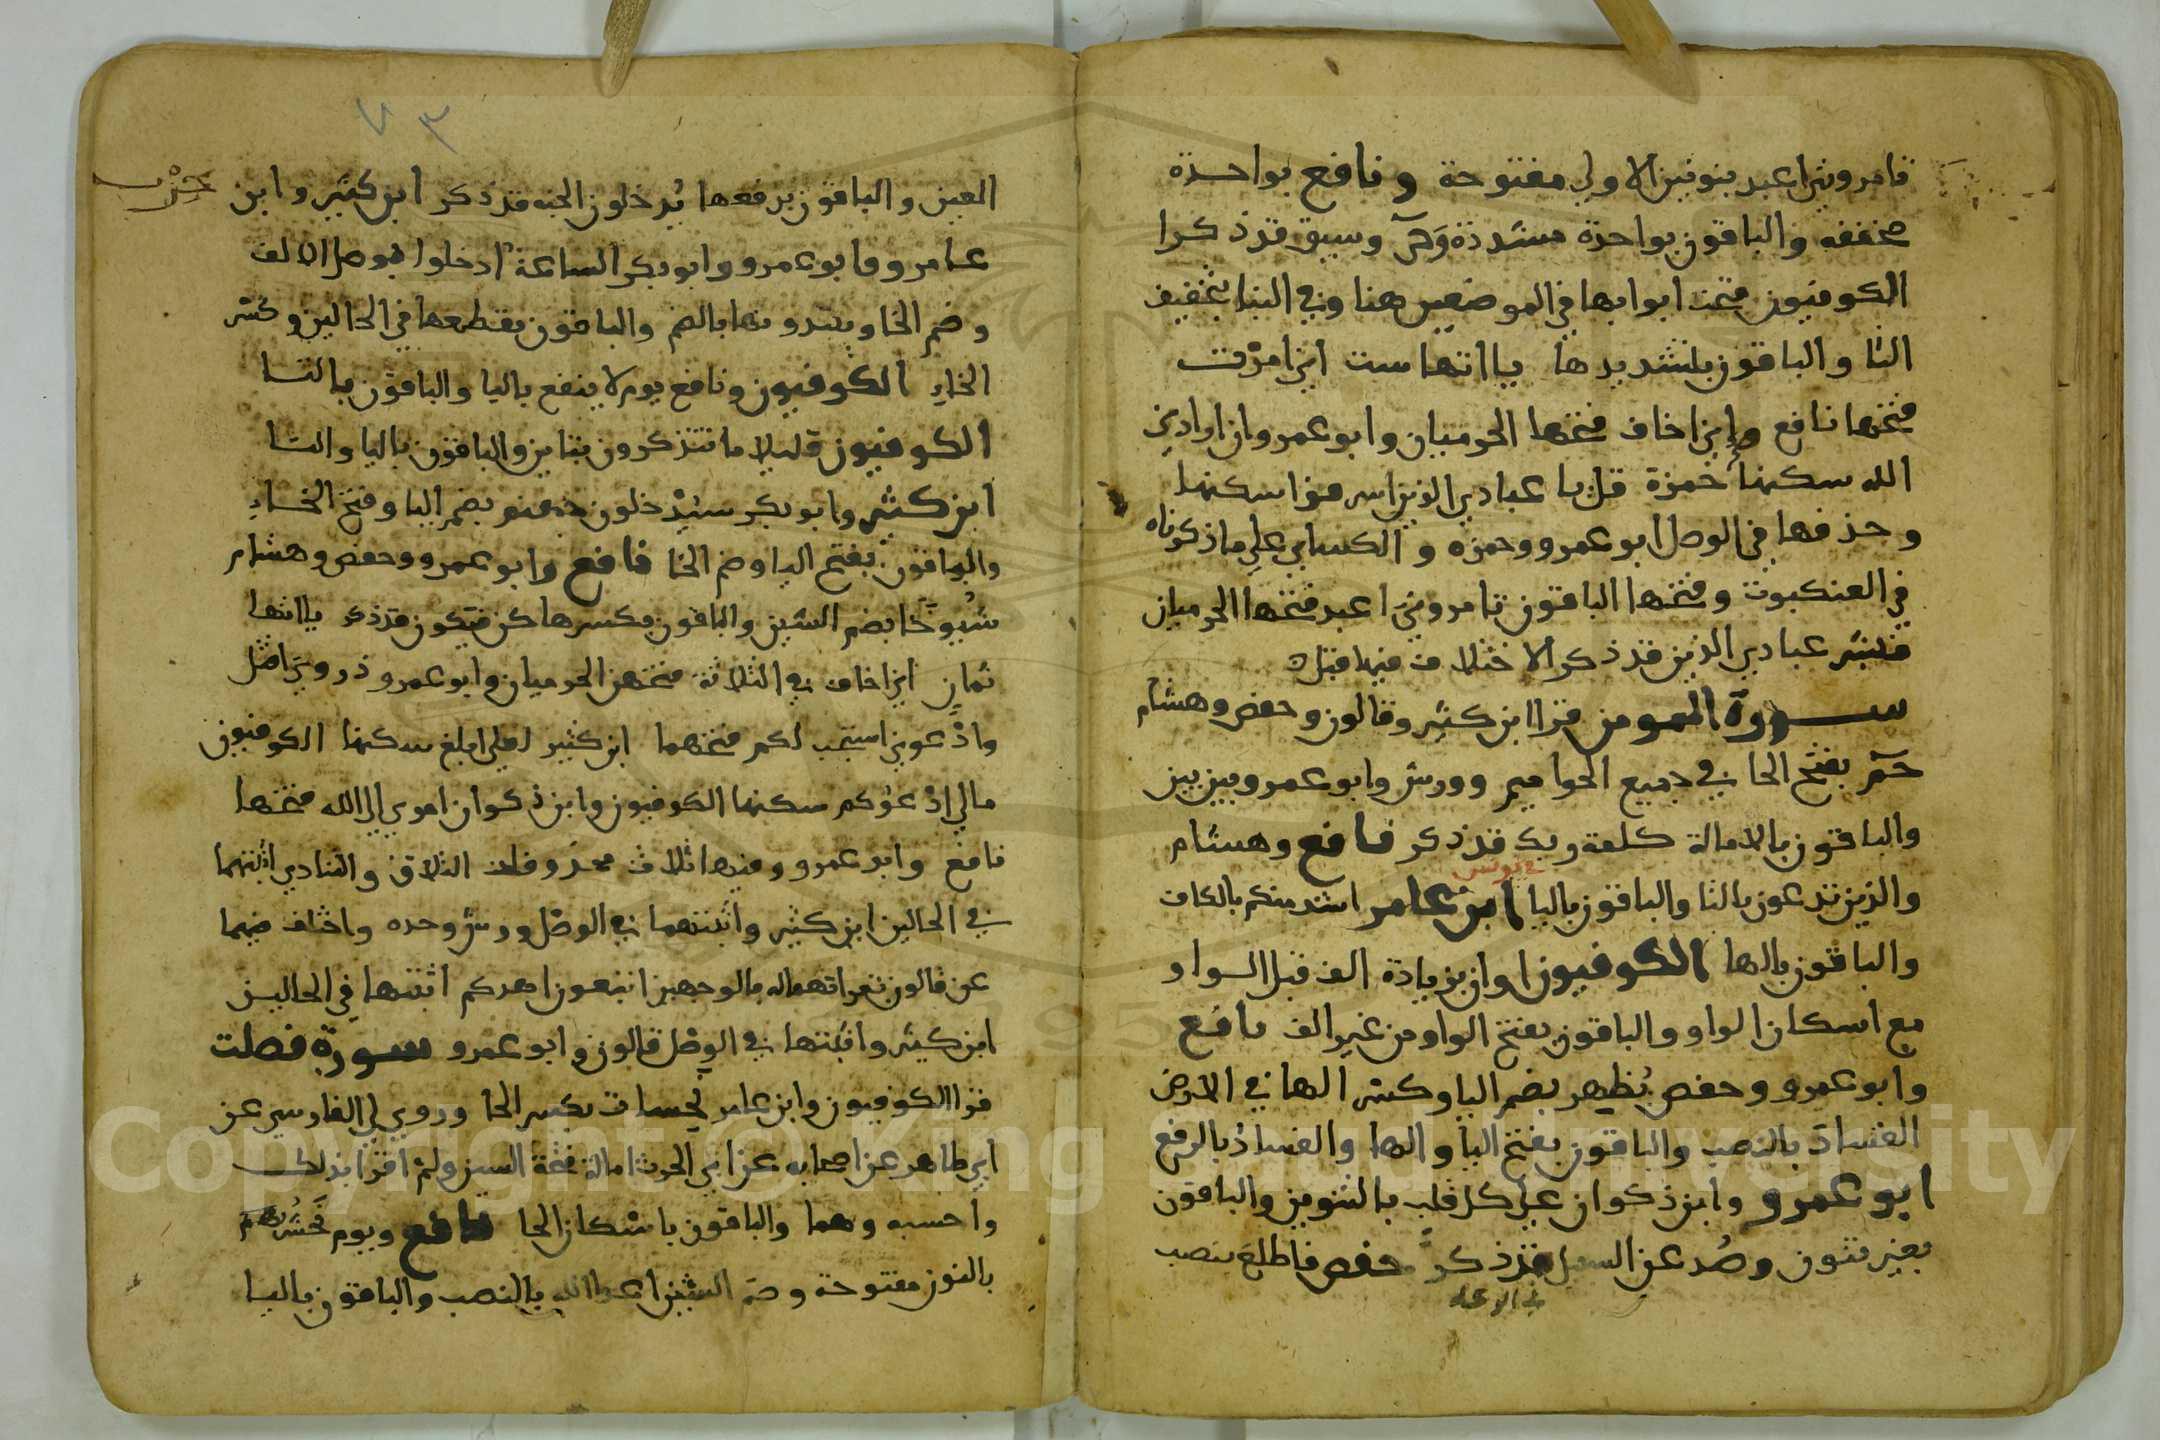 تامرونني اعبد بنونين الاولى مفتوحة ونافع بواحدة
مخففه والباقون بواحدة مشددة وجيء وسيق قد ذكرا
الكوفيون فتحت ابوابها في الموضعين هنا وفي النبا بتخفيف
التا والباقون بتشديدها ياآتها ست اني امرت
فتحها نافع واني اخاف فتحها الحرميان وابو عمرو ان ارادني
الله سكنها حمزة قل يا عبادي الذين اسرفوا سكنها
وحذفها في الوصل ابو عمرو وحمزه والكساي على ما ذكرناه
في العنكبوت وفتحها الباقون تامروني اعبد فتحها الحرميان
فبشر عبادي الذين قد ذكر الاختلاف فيها قبل
سورة المومن قرا ابن كثير وقالون وحفص وهشام
حم بفتح الحا في جميع الحواميم وورش وابو عمرو بين بين
والباقون بالامالة كلمة ربك قد ذكر نافع وهشام
في يونس
والذين تدعون بالتا والباقون باليا ابن عامر اشد منكم بالكاف
والباقون بالها الكوفيون او ان بزيادة الف قبل الواو
مع اسكان الواو والباقون بفتح الواو من غير الف نافع
وابو عمرو وحفص يُظهر بضم اليا وكسر الها في الارض
الفسادَ بالنصب والباقون بفتح اليا والها والفسادُ بالرفع
ابو عمرو وابن ذكوان على كل قلب بالتنوين والباقون
بغير تنون وصُد عن السبيل قد ذكر حفص فاطلعَ بنصب
في الرعد
٧٣
العين والباقون برفعها يُدخلون الجنه قد ذكر ابن كثير وابن
حزب
عامر وابو عمرو وابو بكر الساعة ادخلوا بوصل الالف
وضم الخا ويبتدونها بالضم والباقون بقطعها في الحالين وكسر
الخاء الكوفيون ونافع يوم لا ينفع باليا والباقون بالتا
الكوفيون قليلا ما تتذكرون بتاين والباقون باليا والتا
ابن كثير وابو بكر سيُدْخلون جهنم بضم اليا وفتح الخاء
والباقون بفتح اليا وضم الخا نافع وابو عمرو وحفص وهشام
شُيوخًا بضم الشين والباقون بكسرها كن فيكون قد ذكر ياآتها
ثمان اني اخاف في الثلاثة فتحهن الحرميان وابو عمرو ذروني اقتل
وادعوني استجب لكم فتحهما ابن كثير لعلي ابلغ سكنها الكوفيون
مالي ادْعوُكم سكنها الكوفيون وابن ذكوان امري الى الله فتحها
نافع وابو عمرو وفيها ثلاث محذوفات التلاق والتنادي اثبتهما
في الحالين ابن كثير واثبتهما في الوصل ورش وحده واختلف فيهما
عن قالون فقراتهما له بالوجهين اتبعون اهدكم اثبتها في الحالين
ابن كثير واثبتها في الوصل قالون وابو عمرو سورة فصلت
قرا الكوفيون وابن عامر نحِسات بكسر الحا وروى لي الفارسي عن
ابي طاهر عن اصحابه عن ابي الحرث امالة فتحة السين ولم اقرا بذلك
واحسبه وهما والباقون باسْكان الحا نافع ويوم نَحشُر لهم
بالنون مفتوحة وضم الشين اعدا الله بالنصب والباقون باليا